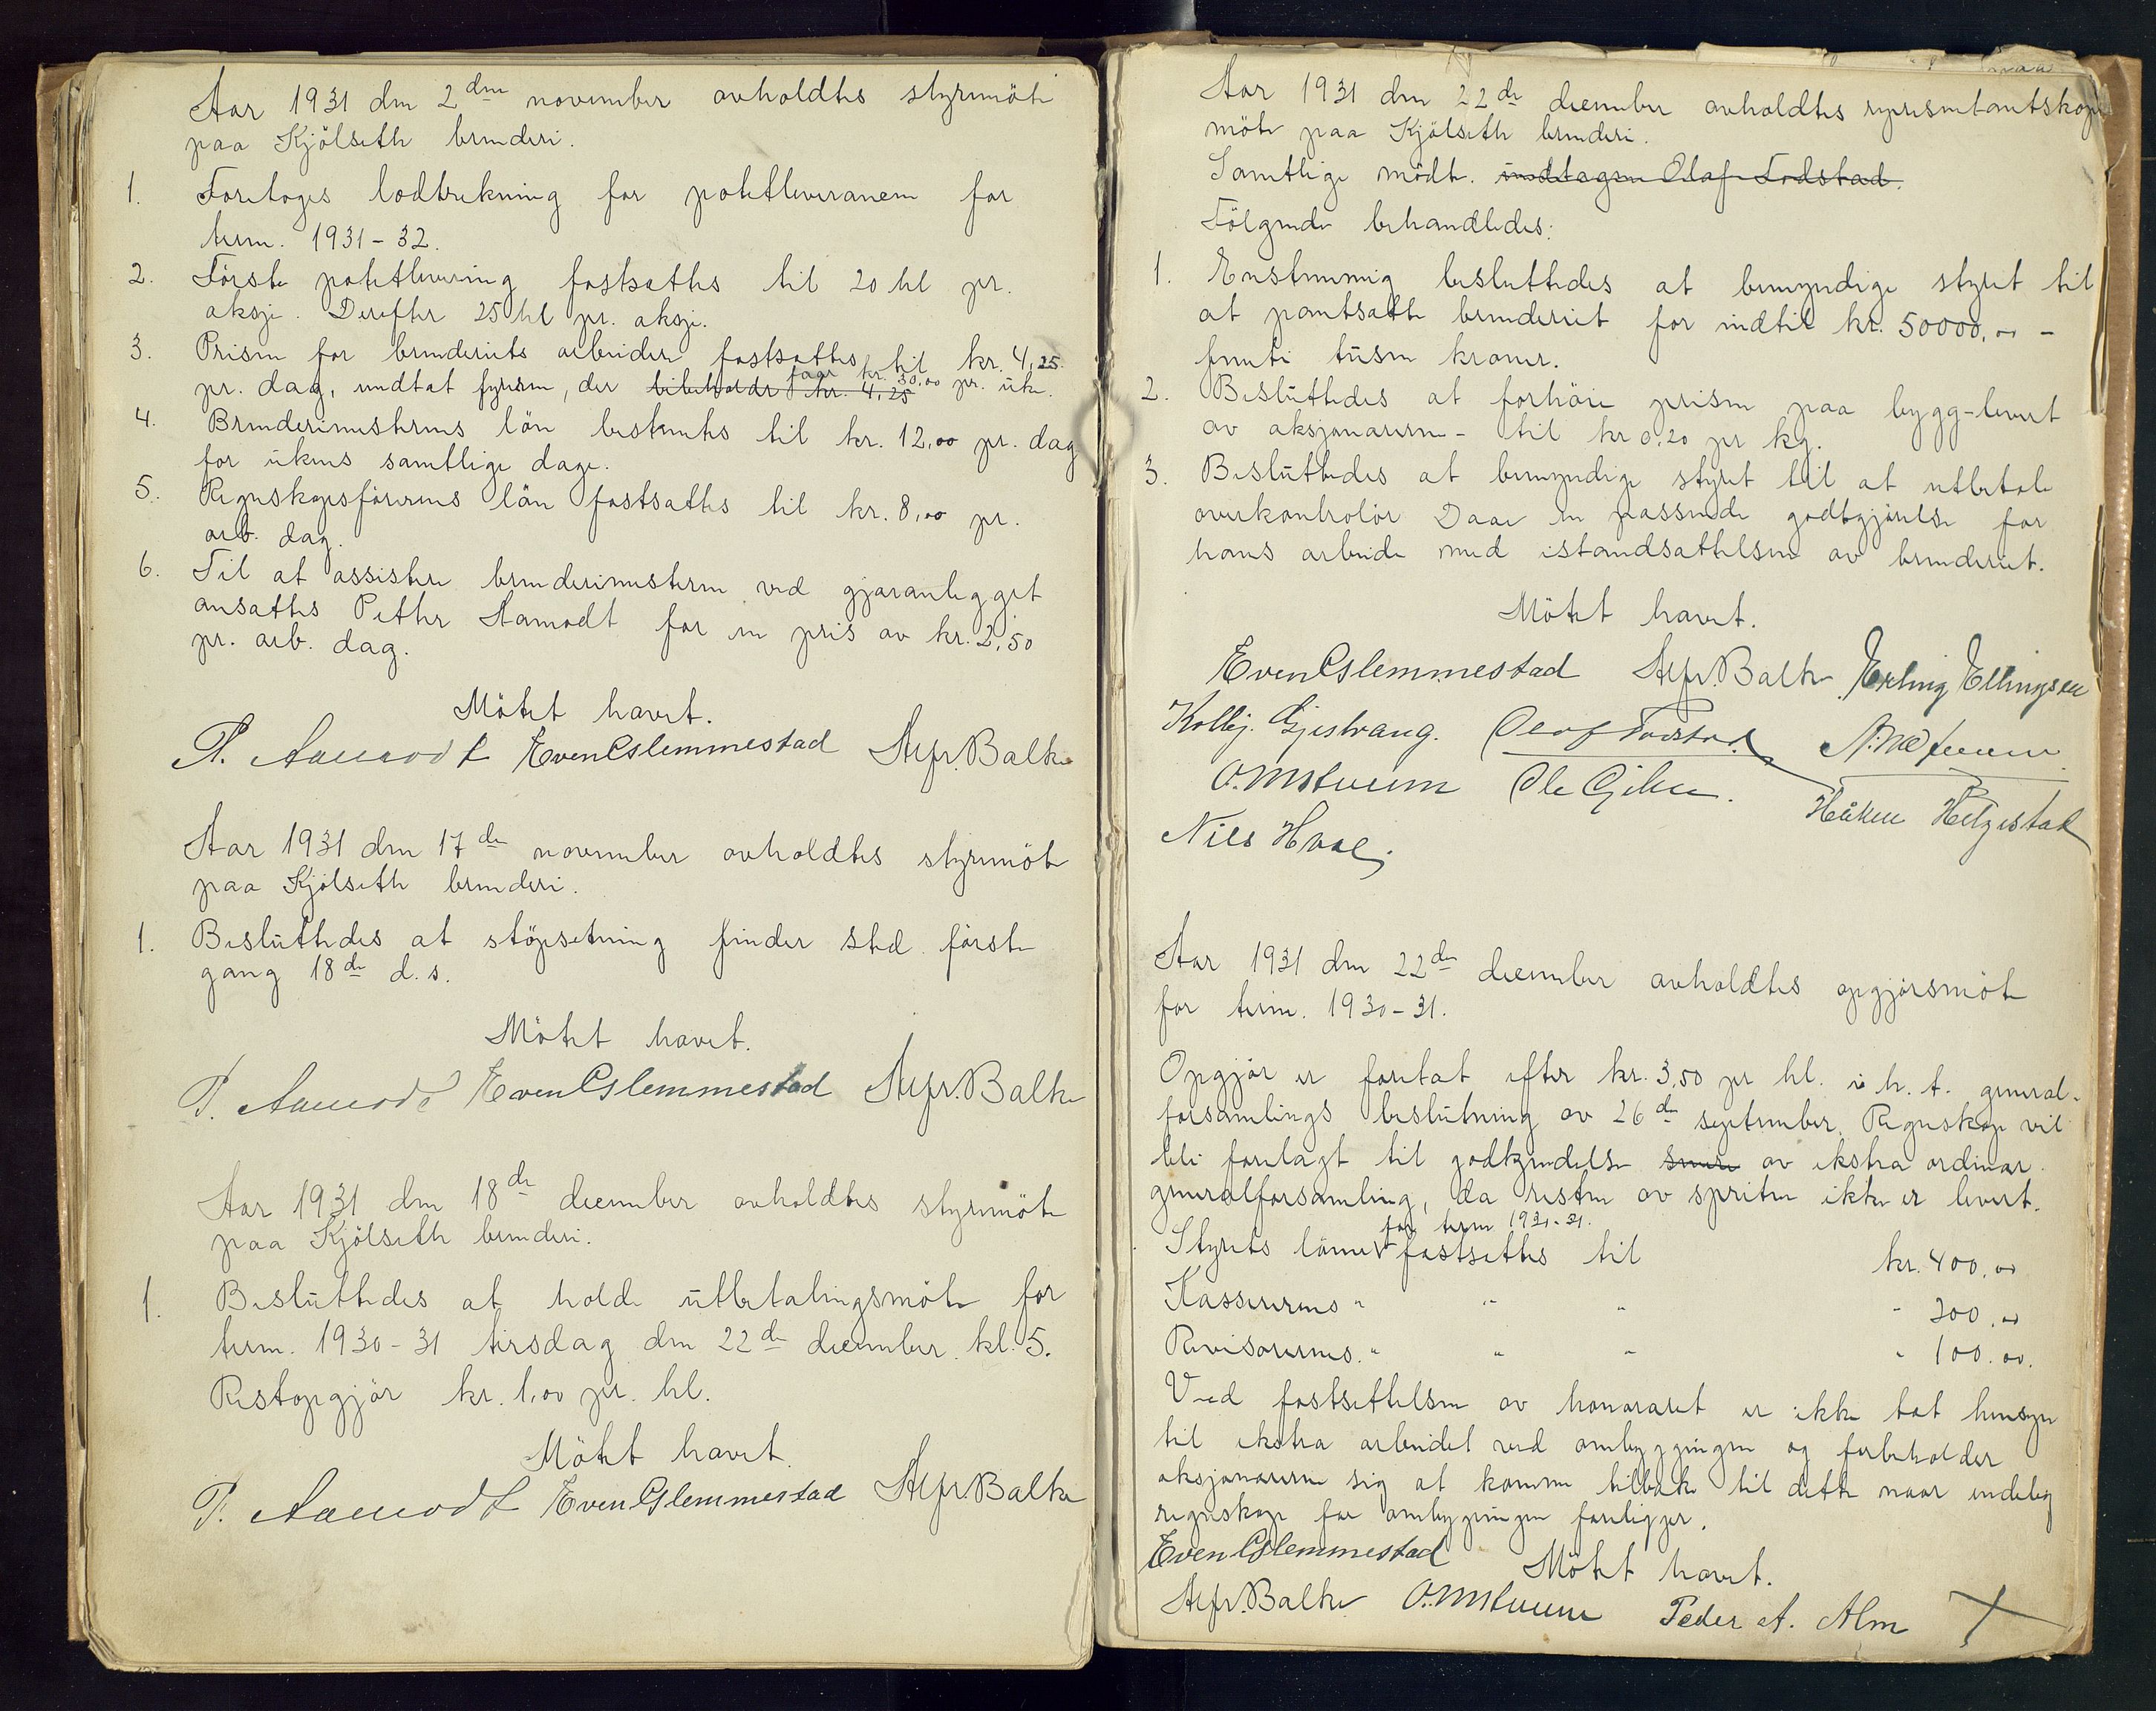 Aar 1931 den 2den november avholdtes styremöte
paa Kjölseth brenderi.
1. Foretoges lodtrekning for potetleveransen for
term. 1931-32.
2. Første potetlevering fastsattes til 20 hl pr.
aksje. Derefter 25 hl pr. aksje.
3. Prisen for brenderiets arbeidere fastsattes til kr. 4,25
pr. dag, undtat fyrsen, der bibeholder kr. 4,25 faar kr. 30,00 pr. uke.
4. Brenderimesterens lön bestemtes til kr. 12,00 pr. dag
for ukens samtlige dage.
5. Regnskapsförerens lön fastsattes til kr. 8,00 pr.
arb. dag.
6. Til at assistere brenderimesteren ved gjæranlegget
ansattes Petter Aamodt for en pris av kr. 2,50
pr. arb. dag.
Mötet hævet.
P. Aamodt Even Glemmestad Alfr. Balke
Aar 1931 den 17de november avholdtes styremöte
paa Kjölseth brenderi.
1. Besluttedes at stöpsetning finder sted förste
gang 18de d.s.
Mötet hævet.
P. Aamodt Even Glemmestad Alfr. Balke
Aar 1931 den 18de december avholdtes styremöte
paa Kjölseth brenderi.
1. Besluttedes at holde utbetalingsmöte for
term. 1930-31 tirsdag den 22de december kl. 5.
Restopgjör kr. 1,00 pr. hl.
Mötet hævet.
P. Aamodt Even Glemmestad Alfr. Balke
Aar 1931 den 22de december avholdtes representantskaps
möte paa Kjölseth brenderi.
Samtlige mödte. undtagen Olaf Fodstad.
Fölgende behandledes:
1. Enstemmig besluttedes at bemyndige styret til
at pantsætte brenderiet for indtil kr. 50000,00 -
femti tusen kroner.
2. Besluttedes at forhöie prisen paa bygg-levert
av aksjonærerne - til kr 0.20 pr kg.
3. Besluttedes at bemyndige styret til at utbetale
overkontrolör Daae en passende godtgjörelse for
hans arbeide med istandsættelsen av brenderiet.
Mötet hævet.
Even Glemmestad Alfr. Balke Erling Ellingsen
Kolbj. Gjestvang. Olaf Fodstad
O. Mstuen Ole Gihle.
Håken Helgestad
Nils Hoel
Aar 1931 den 22de december avholdtes opgjörsmöte
for term. 1930-31.
Opgjör er foretat efter kr. 3,50 pr hl. i h. t. general-
forsamlings beslutning av 26de september. Regnskap vil
bli forelagt til godkjendelse senere av ekstra ordinær
generalforsamling, da resten av spriten ikke er levert.
Styrets lönn for term 1931-31. fastsettes til kr. 400,00
Kassererens " " " - 200,00
Revisorernes. " " " " 100.00.
Ved fastsettelsen av honoraret er ikke tat hensyn
til ekstra arbeidet ved ombyggingen og forbeholder
aksjonærerne sig at komme tilbake til dette naar endelig
regnskap for ombyggingen foreligger.
Even Glemmestad Mötet hævet.
Alfr. Balke O. Mstuen Peder A. Alm